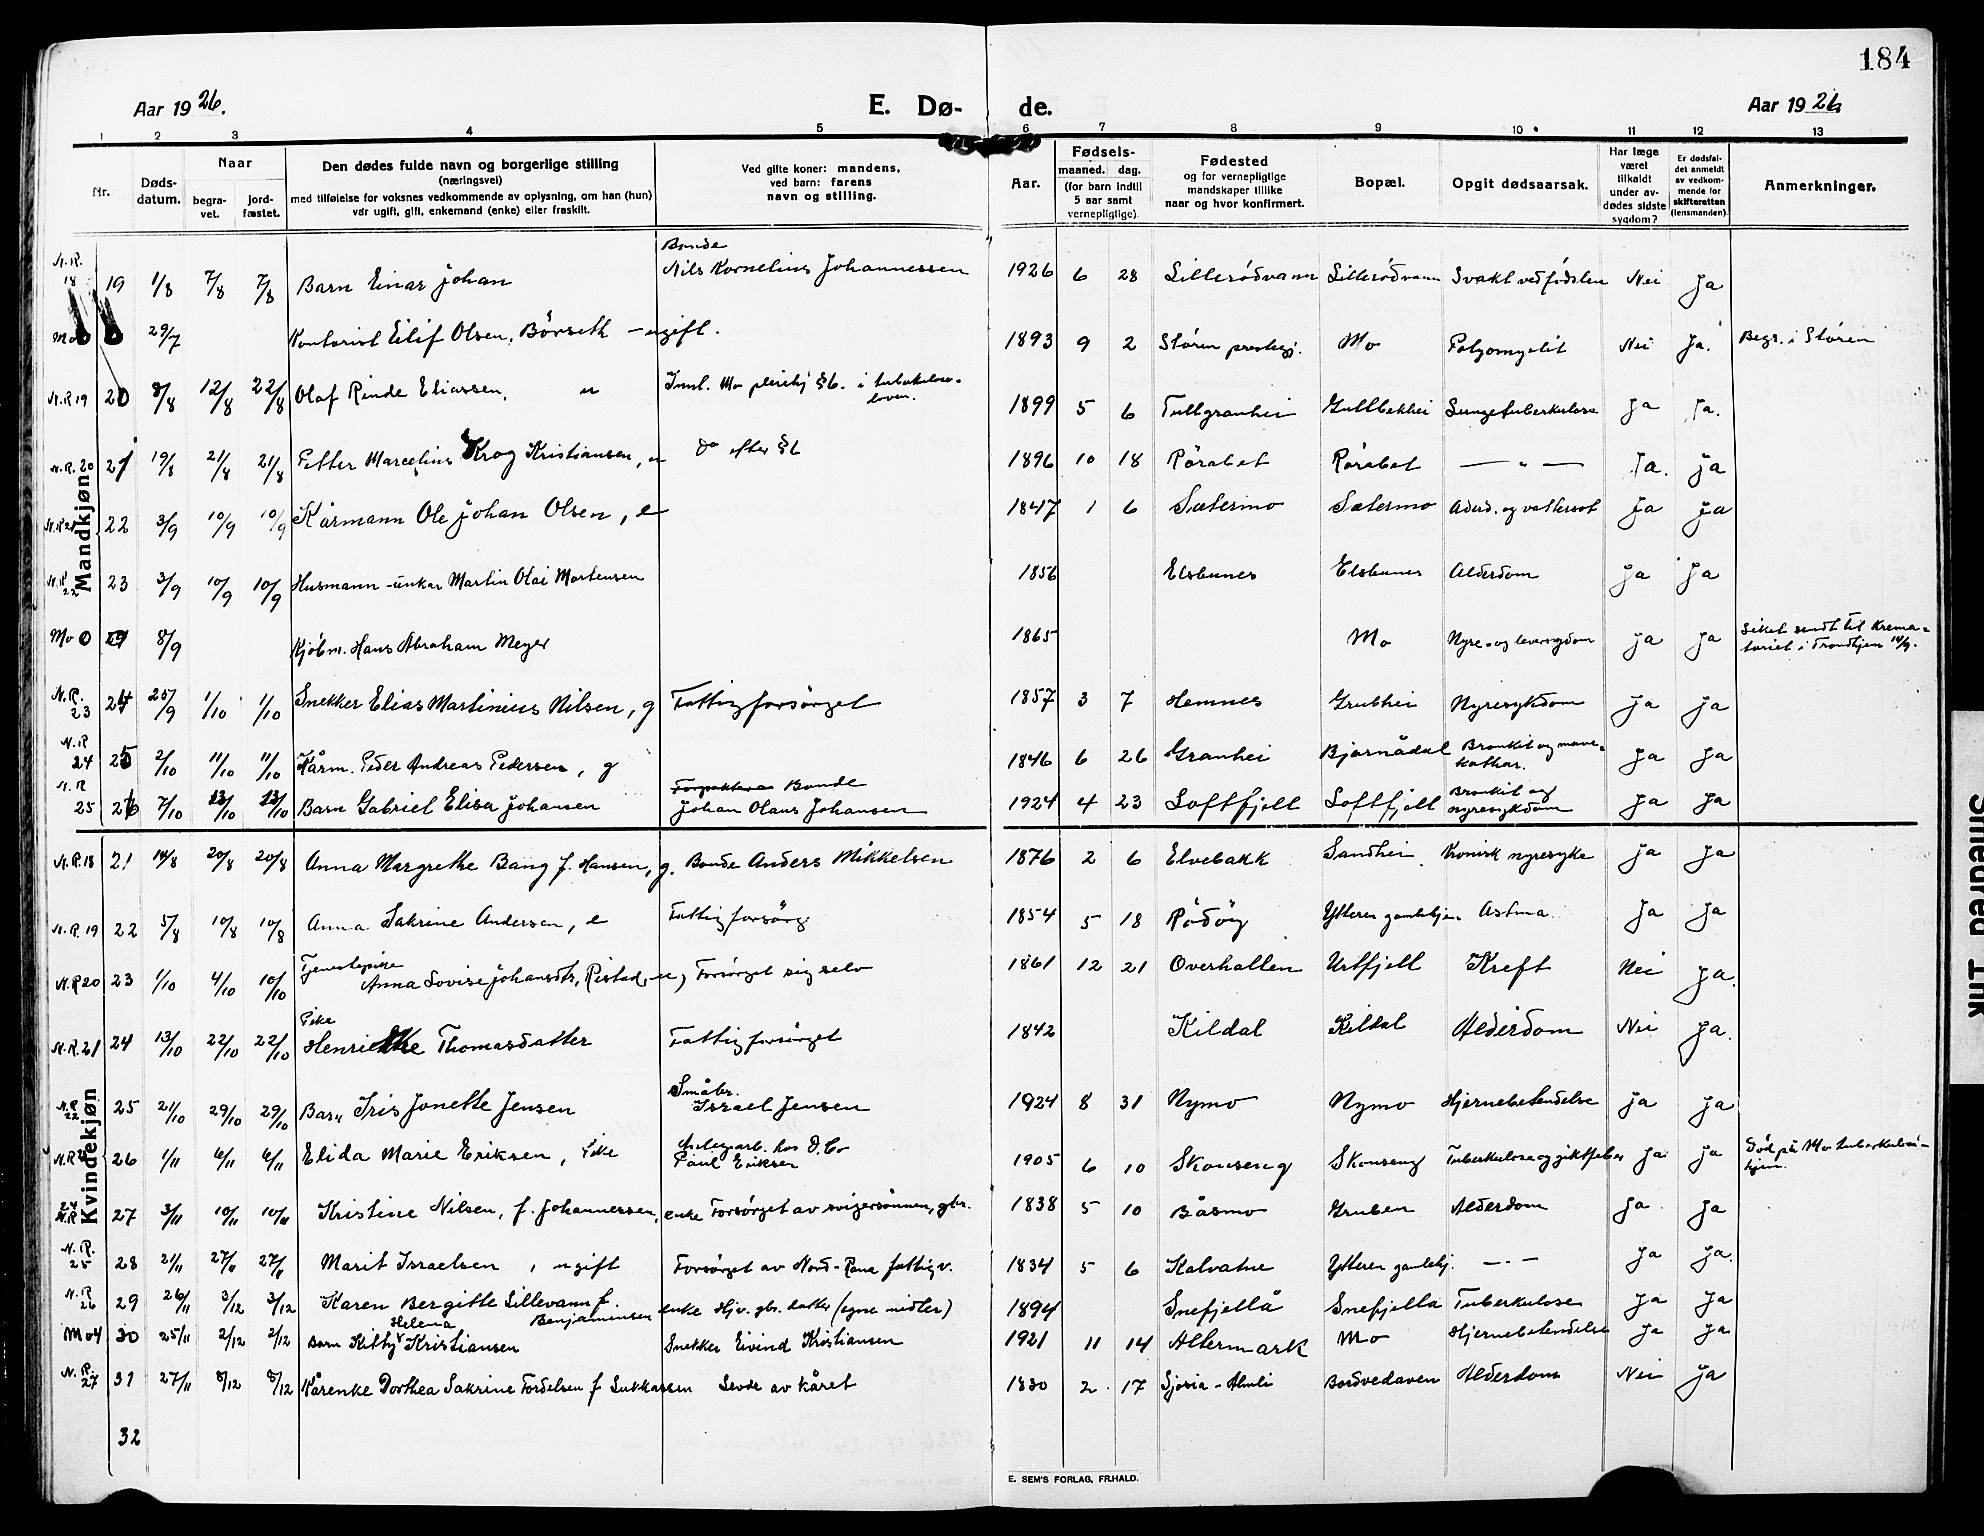 184
Aar 1926. E. Dø- de. Aar 1926
1 2 3 4 5 6 7 8 9 10 11 12 13
Nr.
Døds-
datum.
Naar
begra-
vet.
jord-
fæstet.
Den dødes fulde navn og borgerlige stilling
(næringsvei)
med tilføielse for voksnes vedkommende av oplysning, om han (hun)
var ugift, gift, enkemand (enke) eller fraskilt.
Ved gifte koner: mandens,
ved barn: farens
navn og stilling.
Aar.
Fødsels-
maaned. dag.
(for barn indtil
5 aar samt
vernepligtige)
Fødested
og for vernepligtige
mandskaper tillike
naar og hvor konfirmert.
Bopæl.
Opgit dødsaarsak.
Har læge
været
tilkaldt
under av-
dødes sidste
sygdom?
Er dødsfal-
det anmeldt
av vedkom-
mende for
skifteretten
(lensmanden).
Anmerkninger.
Mandkjøn
N.R. 18 19 1/8 7/8 7/8 Barn Einar Johan Bonde Nils Kornelius Johannessen 1926 6 28 Lillerødvann Lillerødvann Svakt ved fødslen Nei Ja
Mo 29/7 Kontorist Eilif Olsen, Børseth - ugift. 1893 9 2 Støren prestegj. Mo Polyomyelit Nei Ja. Begr. i Støren
N.R 19 20 8/8 12/8 22/8 Olaf Rinde Eliassen, u Innl. Mo pleiehj § 6. i tuberkulose-loven. 1899 5 6 Tullgranhei Gullbekhei Lungetuberkulose Ja Ja.
N.R. 20 21 19/8 21/8 21/8 Petter Marcelius Krog Kristiansen, u Do efter § 6 1896 10 18 Rørabet Rørabet — " — Ja. Ja
N.R 21 22 3/9 10/9 10/9 Kårmann Ole Johan Olsen, e 1847 1 6 Sætermo Sætermo Alderd. og vattersot Ja Ja
N.R 22 23 3/9 10/9 10/9 Husmann - unkar Martin Olai Mortensen 1856 Elsbunes Elsbunes Alderdom Ja Ja
Mo 0 8/9 Kjøbm. Hans Abraham Meyer 1865 Mo Nyre- og leversygdom Ja Ja Liket sendt til Krema-toriet i Trondhjem 14/9.
N.R. 23 24 25/9 1/10 1/10 Snekker Elias Martinius Nilsen, g Fattigforsørget 1857 3 7 Hemnes Grubhei Nyresykdom Ja Ja
N.R 24 25 2/10 11/10 11/10 Kårm. Peder Andreas Pedersen, g 1846 6 26 Granhei Bjørnådal Bronkit og mave-kathar. Ja Ja
N.R 25 26 7/10 13/10 13/10 Barn Gabriel Elisa Johansen Forpakteren Bonde Johan Olaus Johansen 1924 4 23 Loftfjell Loftfjell Bronkit og nyresykdom Ja Ja
Kvindekjøn
N.R.18 21 14/8 20/8 20/8 Anna Margrethe Bang f. Hansen, g. Bonde Anders Mikkelsen 1876 2 6 Elvebakk Sandhei Kronisk nyresyke Ja Ja
N.R. 19 22 5/8 10/8 10/8 Anna Sakrine Andersen, e Fattigforsørg 1854 5 18 Rødøy Ytteren gamlehjem Astma Ja Ja
N.R 20 23 1/10 4/10 10/10 Tjenestepike Anna Lovise Johansdtr, Ristad, u, Forsørget sig selv 1861 12 21 Overhallen Urtfjell Kreft Nei Ja.
N.R. 21 24 13/10 22/10 22/10 Pike Henriette Thomasdatter Fattigforsørget 1842 Kildal Kildal Alderdom Nei Ja.
N.R 22 25 21/10 29/10 29/10 Barn Iris Jonette Jensen Småbr. Israel Jensen 1924 8 31 Nymo Nymo Hjernebetendelse Ja Ja
N.R 26 1/11 6/11 6/11 Elida Marie Eriksen, Pike Anlegsarb. hos D. Co Paul Eriksen 1905 6 10 Skonseng Skonseng Tuberkulose og giktfeber Ja Ja Død på Mo tuberkulose-hjem.
24 N.R 27 3/11 10/11 10/11 Kristine Nilsen, f. Johannessen, enke Forsørget av svigersønnen, gbr. 1838 5 10 Båsmo Gruben Alderdom Ja Ja
N.R. 25 28 21/11 27/11 27/11 Marit Israelsen, ugift Forsørget av Nord-Rana fattigv. 1834 5 6 Kalvatne Ytteren gamlehj. — " — Ja Ja.
N.R. 26 29 26/11 3/12 3/12 Karen Bergitte Lillevann f. Benjaminsen enke Hjv. gbr. datter (egne midler) 1894 Snefjellå Snefjellå Tuberkulose Ja Ja
Mo 4 30 25/11 2/12 2/12 Barn Kitty Helena Kristiansen Snekker Eivind Kristiansen 1921 11 14 Altermark Mo Hjernebetendelse Ja Ja
N.R. 27 31 27/11 8/12 8/12 Kårenke Dorthea Sakrine Tordelsen f Lukkassen Levde av kåret 1830 2 17 Alderdom Nei Ja
32
E. SEM'S FORLAG, FR.HALD.